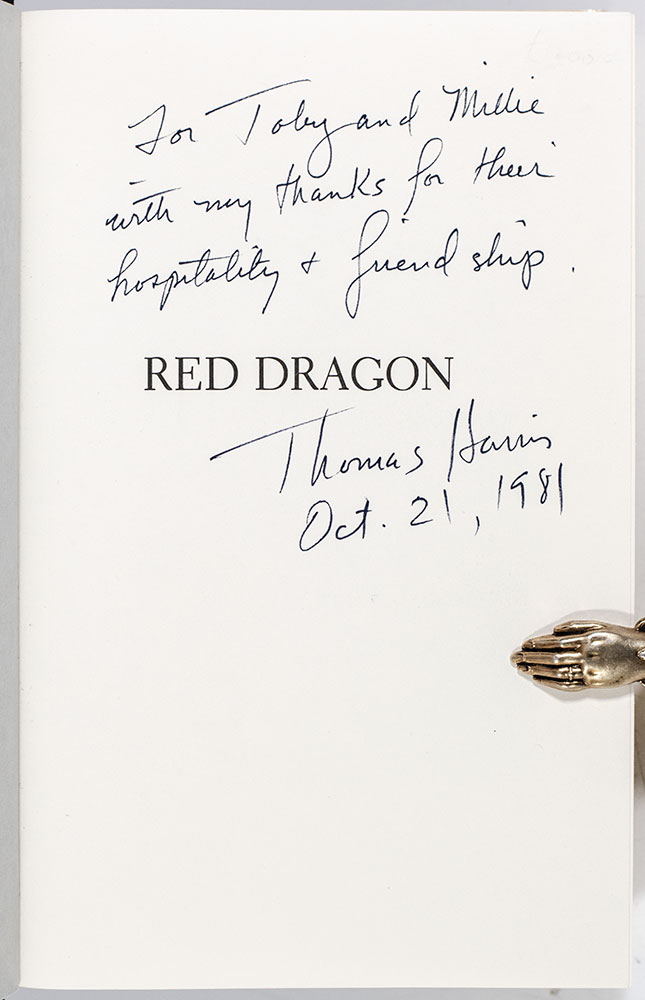 For Toby and Millie
with my thanks for their
hospitality + friendship.
RED DRAGON
Thomas Harris
Oct. 21, 1981